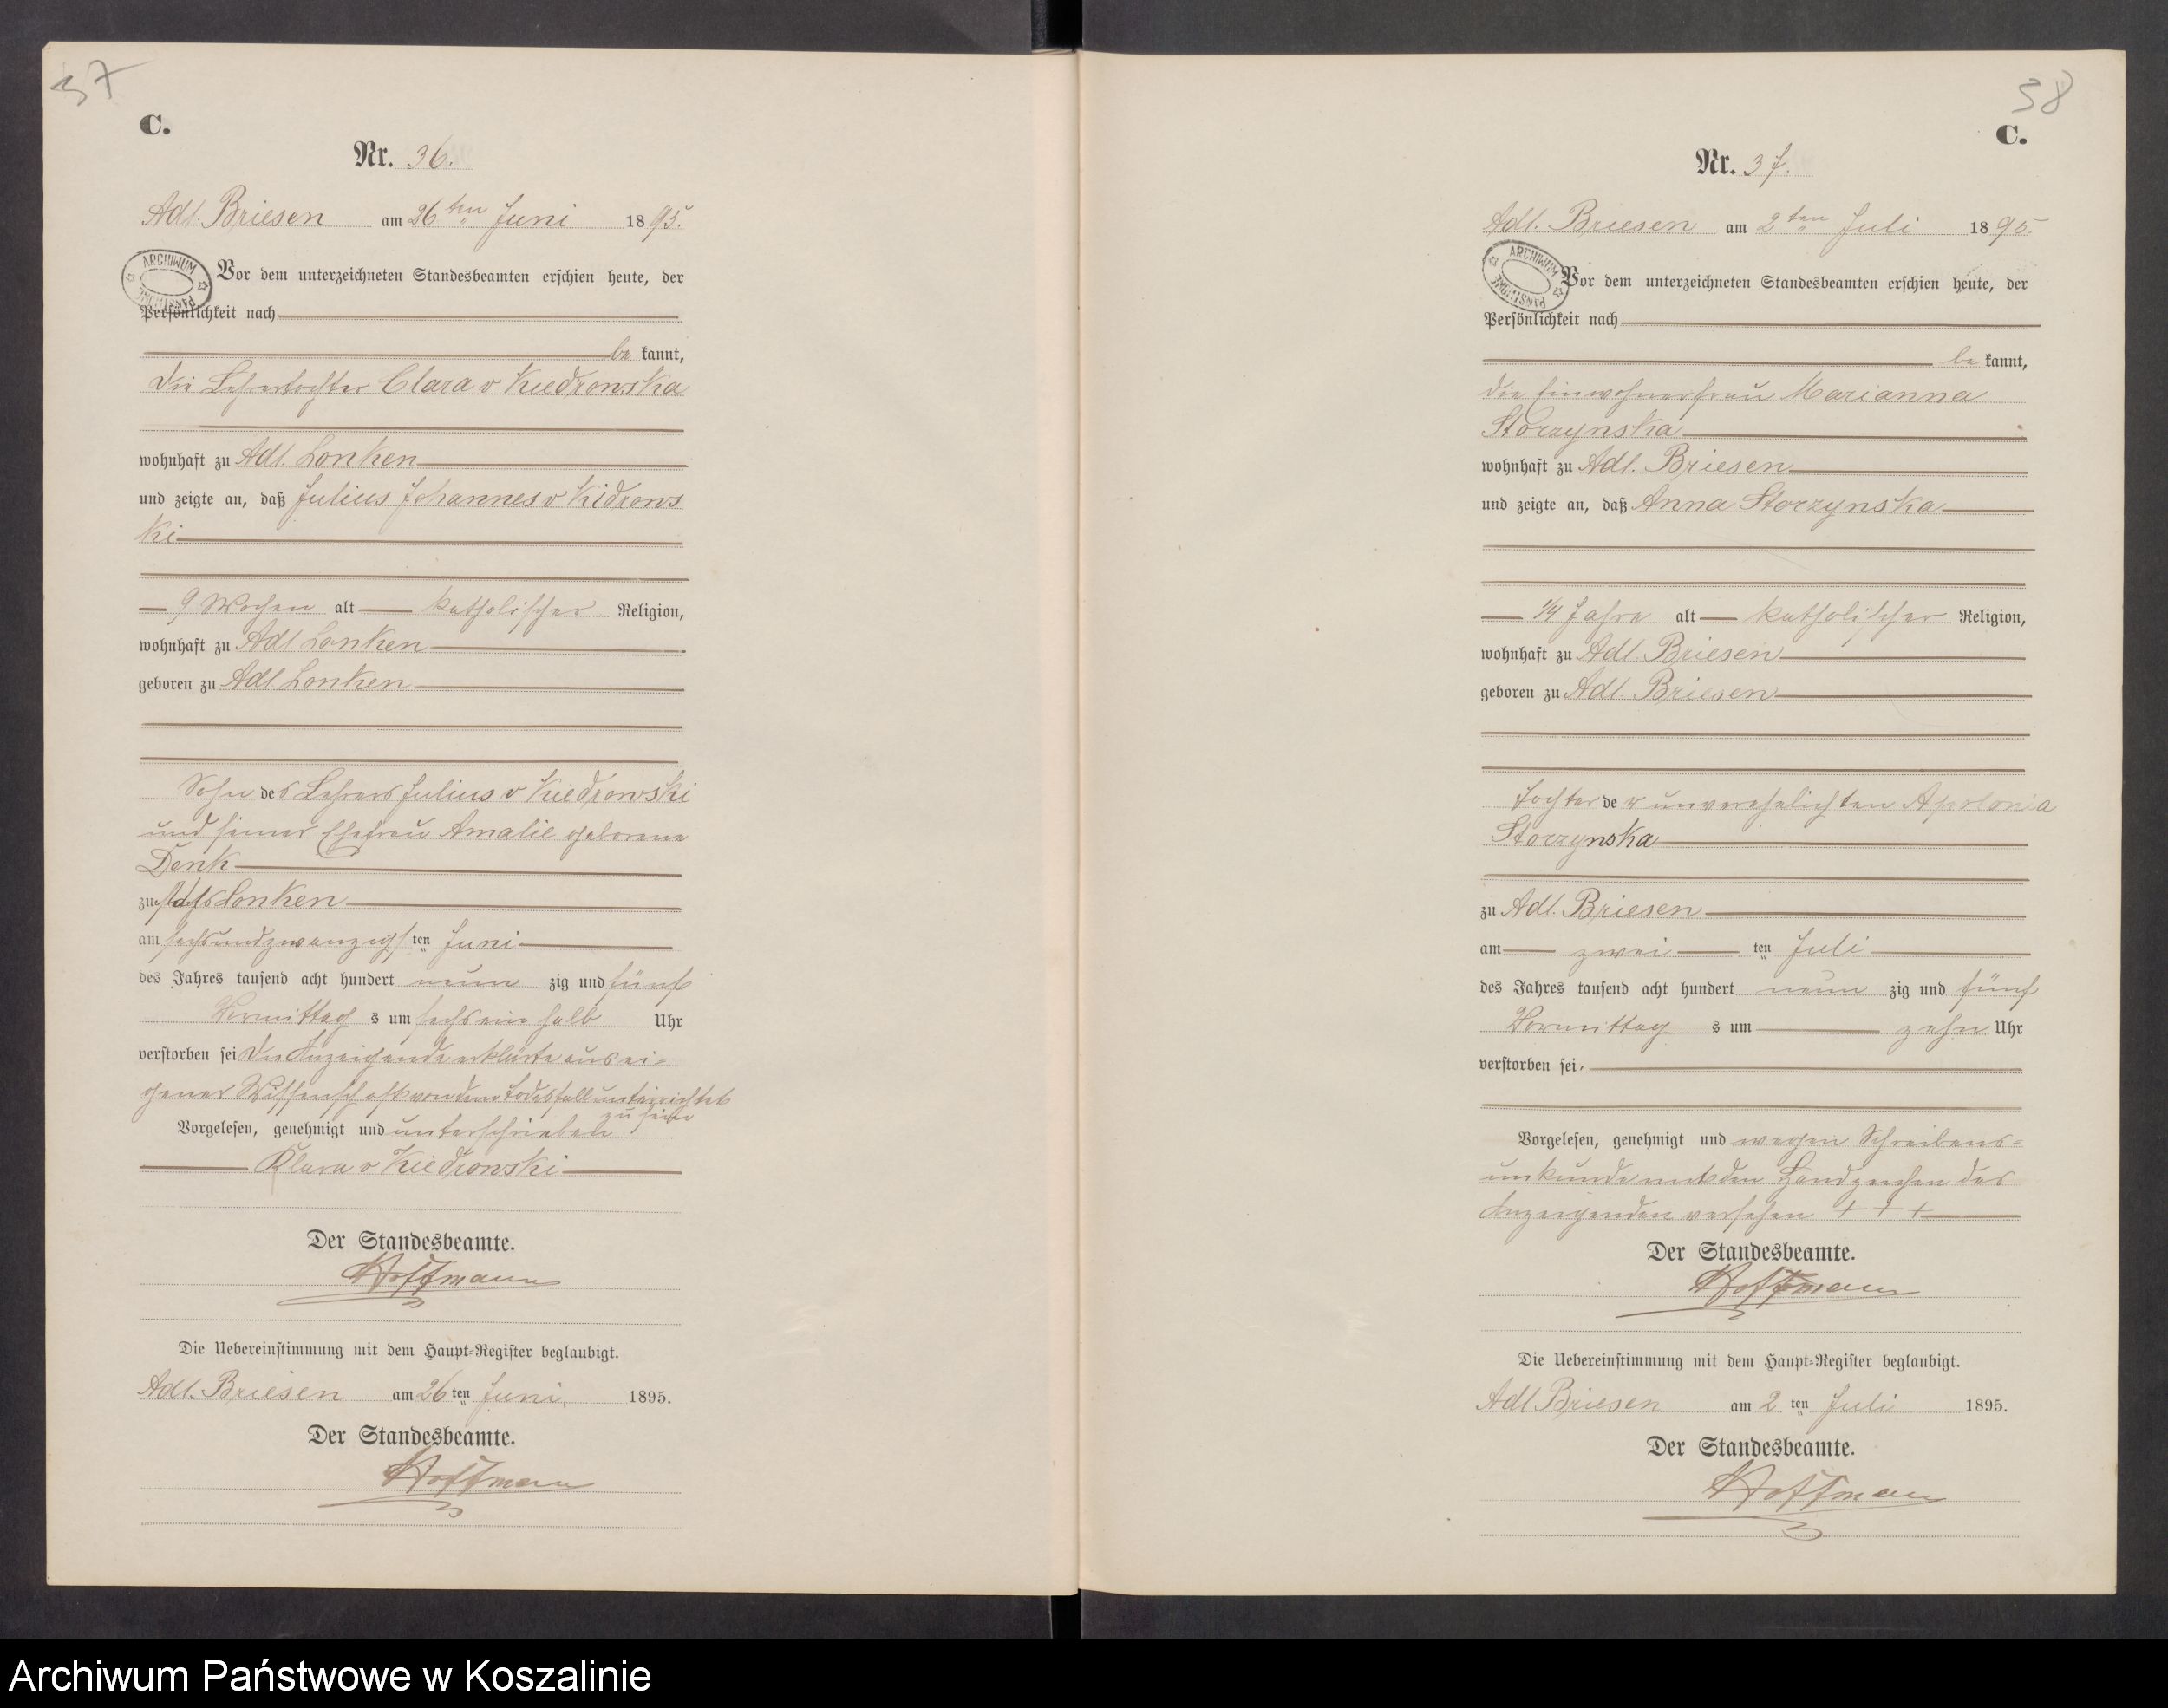 37
C.
Nr. 36.
Adl. Briesen am 26ten Juni 1895.
ARCHIWUM PAŃSTWOWE
Vor dem unterzeichneten Standesbeamten erschien heute, der
Persönlichkeit nach
be kannt,
die Lehrertochter Clara v Kiedrowska
wohnhaft zu Adl. Lonken
und zeigte an, daß Julius Johannes v Kidrows
ki
9 Wochen alt katholischer Religion,
wohnhaft zu Adl Lonken
geboren zu Adl Lonken
Sohn des Lehrers Julius v Kiedrowski
und seiner Ehefrau Amalie geborene
Denk
zu Lonken
am sechsundzwanzigsten Juni
des Jahres tausend acht hundert neun zig und fünf
Vormittag s um sechs ein halb Uhr
verstorben sei Die Anzeigende erklärte aus ei-
gener Wissenschaft von dem Todesfall unterrichtet
zu sein
Vorgelesen, genehmigt und unterschrieben
Klara v Kiedrowski
Der Standesbeamte.
Hoffmann
Die Uebereinstimmung mit dem Haupt-Register beglaubigt.
Adl. Briesen am 26ten Juni. 1895.
Der Standesbeamte.
Hoffmann
38
C.
Nr. 37.
Adl. Briesen am 2ten Juli 1895
ARCHIWUM PAŃSTWOWE
Vor dem unterzeichneten Standesbeamten erschien heute, der
Persönlichkeit nach
be kannt,
die Einwohnerfrau Marianna
Storzynska
wohnhaft zu Adl. Briesen
und zeigte an, daß Anna Storzynska
1/4 Jahre alt katholischer Religion,
wohnhaft zu Adl. Briesen
geboren zu Adl. Briesen
Tochter der unverehelichten Apolonia
Storzynska
zu Adl. Briesen
am zwei ten Juli
des Jahres tausend acht hundert neun zig und fünf
Vormittag s um zehn Uhr
verstorben sei.
Vorgelesen, genehmigt und wegen Schreibens-
unkunde mit den Handzeichen des
Anzeigenden versehen + + +
Der Standesbeamte.
Hoffmann
Die Uebereinstimmung mit dem Haupt-Register beglaubigt.
Adl Briesen am 2ten Juli 1895.
Der Standesbeamte.
Hoffmann
Archiwum Państwowe w Koszalinie